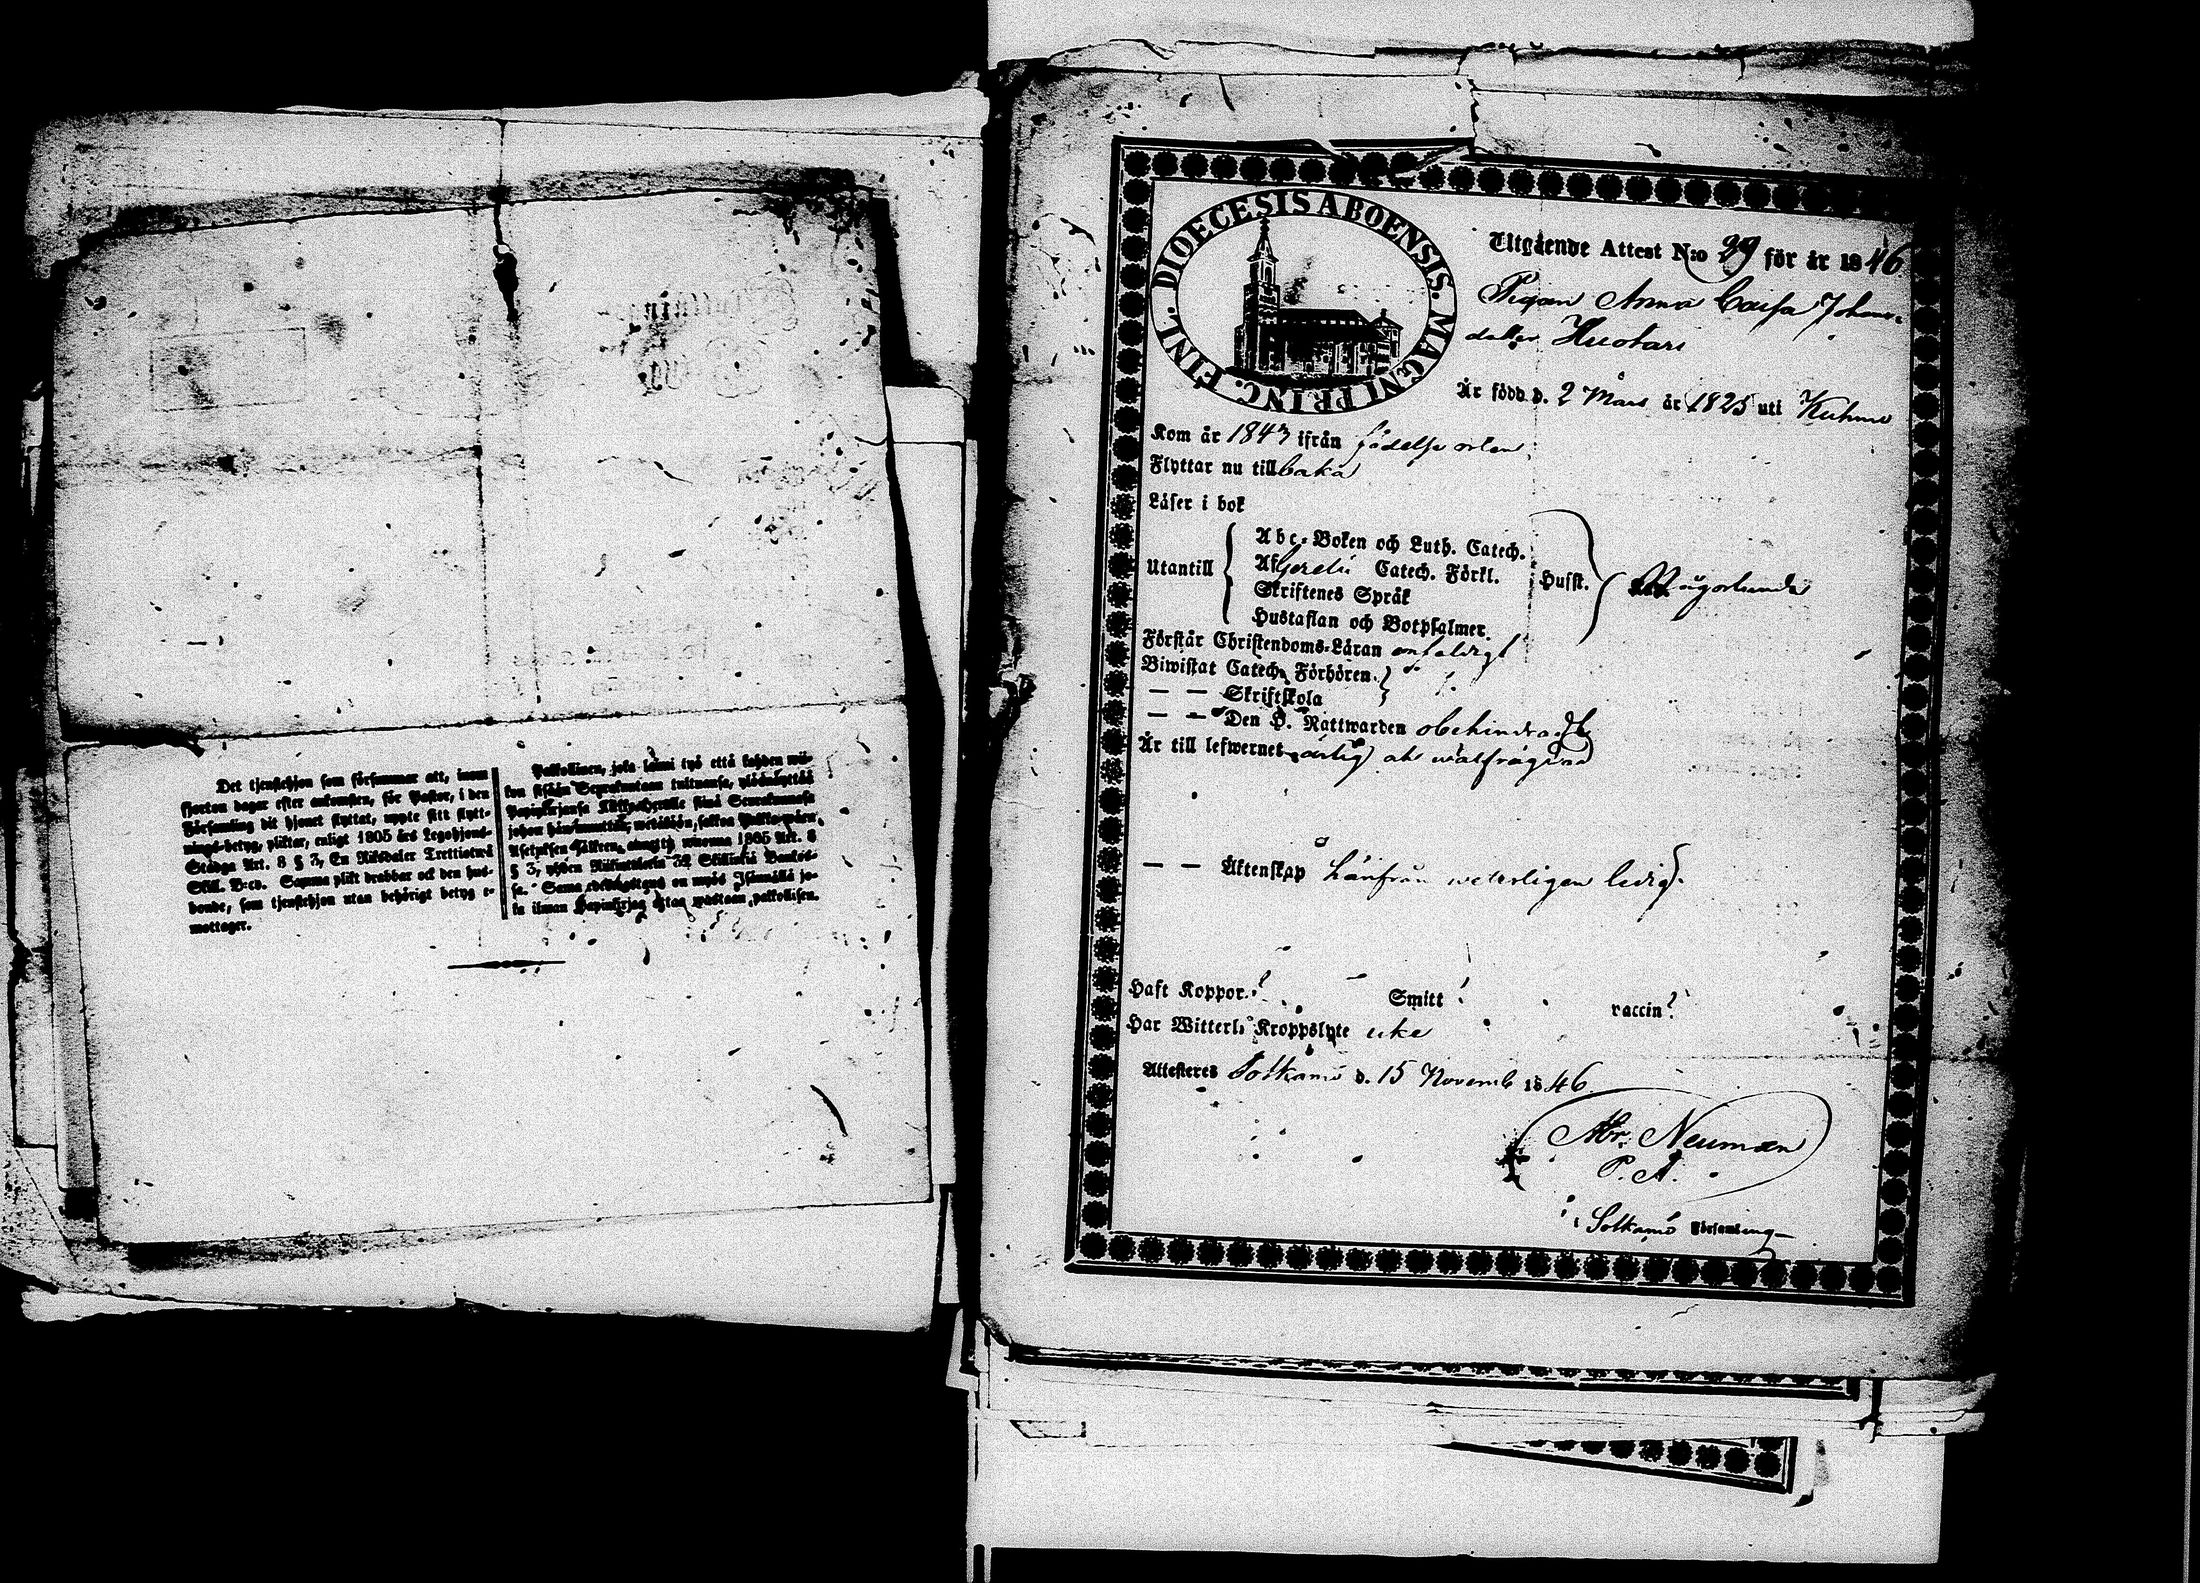 Det tjenstehjon som försummar att, inom
fjorton dagar efter ankomsten, för Pastor, i den
Församling dit hjonet flyttat, uppte sitt flytt-
nings-betyg, pliktar, enligt 1805 års Legohjons-
Stadga Art. 8 § 3, En Riksdaler Trettiotwå
Skill. B:co. Samma plikt drabbar ock den hus-
bonde, som tjenstehjon utan behörigt betyg e-
mottager.
Palkollinen, joka laimi lyö että kahden wii-
kon sisään Seurakuntaan tultuansa, ylösnäyttää
Papinkirjansa Kirkkoherralle siinä Seurakunnasa
johon hän muuttaa, wetäköön, sakkoa Palkkawäen
Asetuksen jälkeen, annettu wuonna 1805 Art. 8
§ 3, yhden Riikintalarin 32 Skillinkiä Bankos-
sa. Sama edeswastaus on myös Isännällä jo-
ka ilman Papinkirjaa ottaa wastaan palkollisen.
DIOECESIS ABOENSIS. MAGNI PRINC. FINL.
Utgående Attest N:o 29 för år 1846
Pigan Anna Caisa Johans-
dotter Huotari
Är född d. 2 Mars år 1825 uti Kuhmo
Kom år 1843 ifrån födelse orten
Flyttar nu tillbaka
Läser i bok
Utantill
Abc-Boken och Luth. Catech.
Af Gerelii Catech. Förkl.
Skriftenes Språk
Hustaflan och Botpsalmer.
Husst.
Någorlunda
Förstår Christendoms-Läran enfaldigt
Biwistat Catech. Förhören
— — Skriftskola
— — Den H. Nattwarden obehindrad
Är till lefwernet ärlig och wälfrägdad
— — Äktenskap härifrån weterligen ledig.
Haft Koppor ? Smitt ! vaccin ?
Har Witterl. Kroppslyte icke
Attesteres Sotkamo d. 15 Novemb 1846
Abr. Neuman
P. A.
i Sotkamo Församling